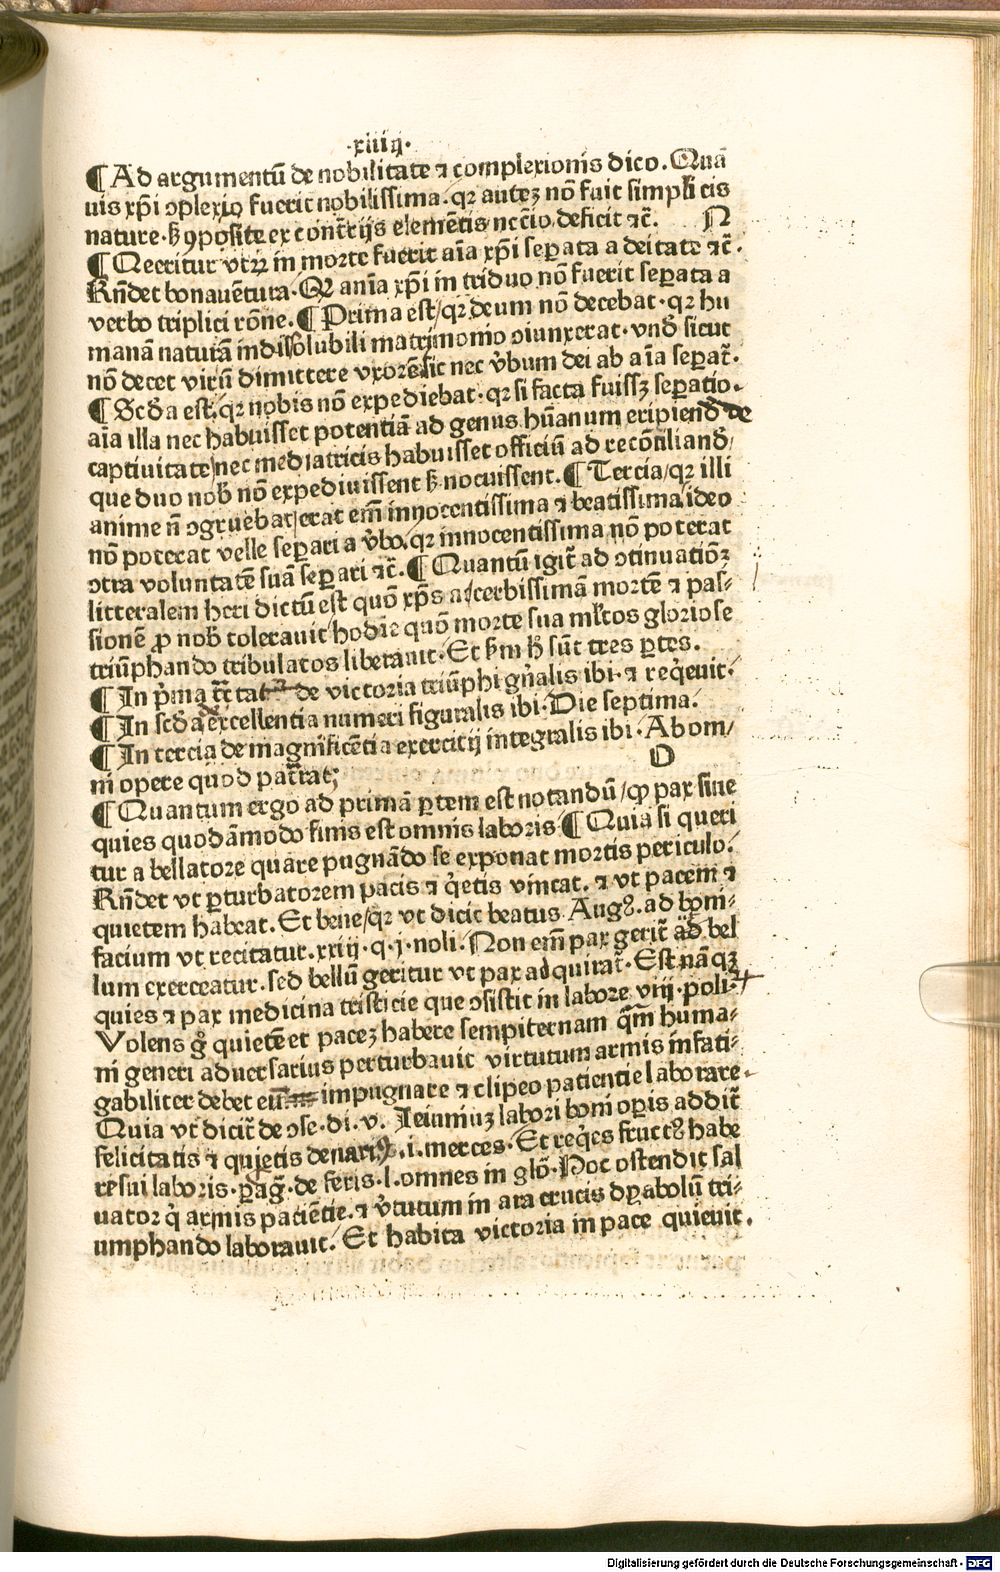 ·xiiij·
¶ Ad argumentū de nobilitate ⁊ complexionis dico. Quā
uis xp̄i ↄplexio fuerit nobilissima. qꝛ auteꝫ nō fuit simplicis
nature. sꝫ ꝯposite ex cont̄rijs elemētis nec̄io deficit ⁊c̄. N
¶ Qeeritur vtꝝ in morte fuerit aīa xp̄i seꝑata a deitate ⁊c̄.
Rn̄det bonauētura. Qꝛ anīa xp̄i in triduo nō fuerit seꝑata a
verbo triplici rōne. ¶ Prima est/qꝛ deum nō decebat. qꝛ hu
manā naturā indissolubili matrimonio ↄiunxerat. vnď sicut
nō decet virū dimittere vxorē sic nec v̉bum dei ab aīa seꝑat̄.
¶ Scďa est. qꝛ nobis nō expediebat. qꝛ si facta fuissꝫ seꝑatio.
aīa illa nec habuisset potentiā ad genus hūanum eripienď de
captiuitate/nec mediatricis habuisset officiū ad recōciliand̉/
que duo nob̄ nō expediuissent sꝫ nocuissent. ¶ Tercia/qꝛ illi
anime n̄ ↄgruebat/erat em̄ innocentissima ⁊ beatissima. ideo
nō poterat velle seꝑari a v̉bo. qꝛ innocentissima nō poterat
ↄtra voluntatē suā seꝑari ⁊c̄. ¶ Quantū igit̄ ad ↄtinuatiōꝫ
litteralem heri dictū est quō xp̄s acerbissimā mortē ⁊ pas-
sionē ꝓ nob̄ tolerauit hodie quō morte sua ml̄tos gloriose
triūphando tribulatos liberauit. Et ẜm h̄ sūt tres ꝑtes.
¶ In p̉ma tractat de victoria triūphi gn̄alis ibi. ⁊ reqͥeuit.
¶ In scďa de excellentia numeri figuralis ibi. Die septima.
¶ In tercia de magnificētia exercitij integralis ibi. Ab om/
ni opere quod patrat; O
¶ Quantum ergo ad primā ꝑtem est notandū/ꝙ pax siue
quies quodāmodo finis est omnis laboris ¶ Quia si queri
tur a bellatore quare pugnādo se exponat mortis periculo.
Rn̄det vt ꝑturbatorem pacis ⁊ qͥetis vincat. ⁊ vt pacem ⁊
quietem habeat. Et bene/qꝛ vt dicit beatus Augꝰ. ad boni-
facium vt recitatur. xxiij. q. j. noli. Non em̄ pax gerit̄ ad bel
lum exerceatur. sed bellū geritur vt pax adquirat̄. Est nāqꝫ
quies ⁊ pax medicina tristicie que ↄsistit in labore viij. poli.
Volens gͦ quietē et paceꝫ habere sempiternam qͣm huma-
ni generi aduersarius perturbauit virtutum armis infati-
gabiliter debet eū impugnare ⁊ clipeo patientie laborare.
Quia vt dicit̄ de ↄse. di. v. Jeiuniuꝫ labori boni oꝑis addit̄
felicitatis ⁊ quietis denariꝰ. .i. merces. Et reqͥes fructꝰ habe
re sui laboris. ꝑag̃. de feris. l. omnes in glō. Hoc ostendit sal
uator qͥ armis paciētie. ⁊ v̉tutum in ara crucis dyabolū tri-
umphando laborauit. Et habita victoria in pace quieuit.
Digitalisierung gefördert durch die Deutsche Forschungsgemeinschaft - DFG